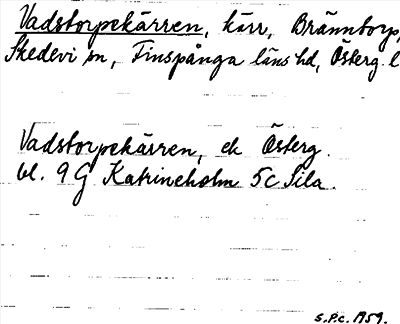 Vadstorpekärren, kärr, Bränntorp,
Skedevi sn, Finspånga läns hd, Österg. l
Vadstorpekärren, ek Österg.
bl. 9 G Katrineholm 5c Sila.
S.P.c. 1959.